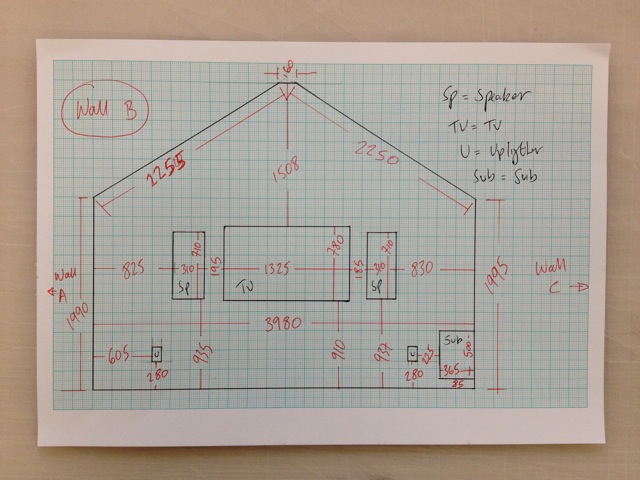 Wall B
Sp = Speaker
TV = TV
U = Uplyther
Sub = Sub
2255
2250
1508
825
310
710
Sp
195
1325
TV
780
185
310
710
Sp
830
Wall A
Wall C
1990
1995
3980
605
U
280
935
910
937
U
280
225
Sub
500
365
85